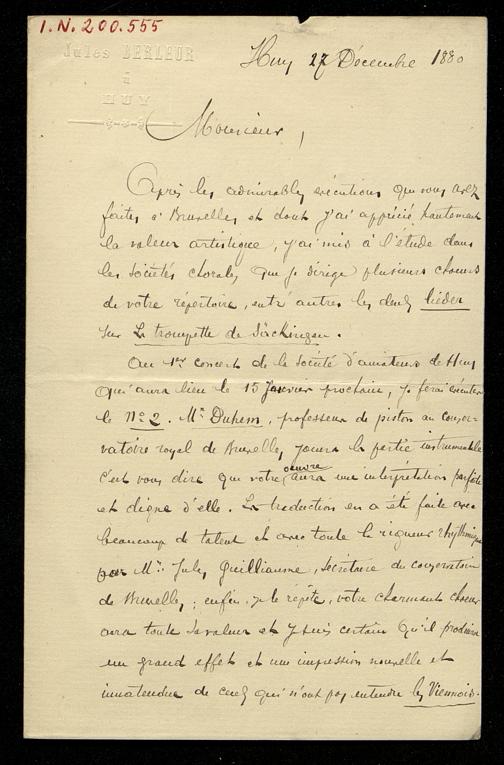 I.N. 200.555
Jules DERLEUR
à
HUY
Huy 27 Décembre 1880
Monsieur,
Après les admirables exécutions que vous avez
faites à Bruxelles et dont j'ai apprécié hautement
la valeur artistique, j'ai mis à l'étude dans
les Sociétés chorales que je dirige plusieurs chœurs
de votre répertoire, entr'autres les deux lieder
sur La trompette de Säckingen.
Au 1er concert de la Société d'amateurs de Huy
qui aura lieu le 15 Janvier prochain, je ferai exécuter
le No 2. Mr Duhem, professeur de piston au conser-
vatoire royal de Bruxelles, jouera la partie instrumentale
c'est vous dire que votre œuvre aura une interprétation parfaite
et digne d'elle. La traduction en a été faite avec
beaucoup de talent et avec toute la rigueur rhythmique
par Mr. Jules Guilliaume, Secrétaire du conservatoire
de Bruxelles; enfin, je le répète, votre charmant chœur
aura toute sa valeur et je suis certain qu'il produira
un grand effet et une impression nouvelle et
innatendue de ceux qui n'ont pas entendre les Viennois.